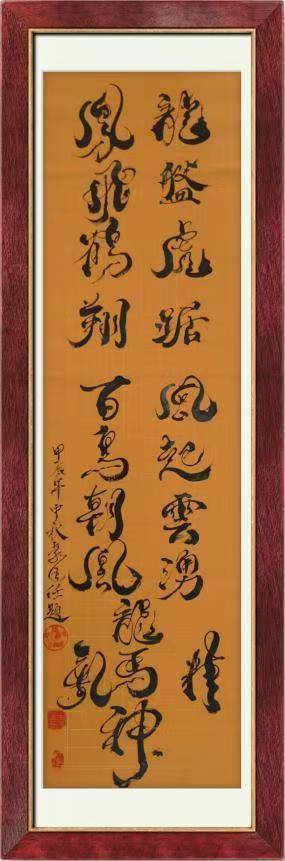 龍盤虎踞風起雲湧
鳳飛鶴翔百鳥朝鳳
精
龍馬神
氣
甲辰年中秋
題